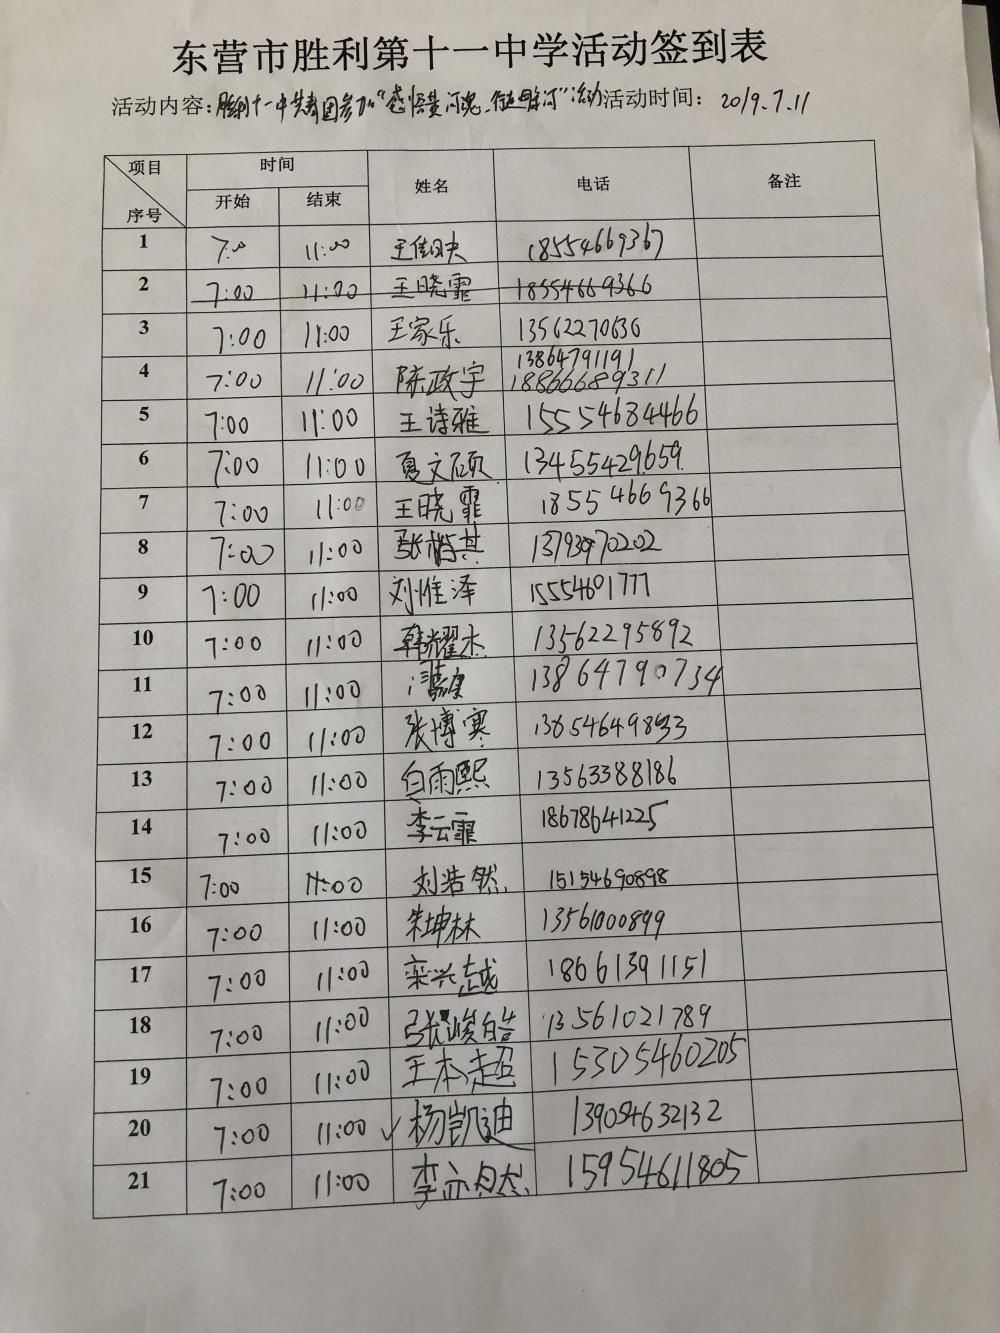 东营市胜利第十一中学活动签到表
活动内容：胜利十一中 团参加“感悟黄河魂 ”活动 活动时间： 2019.7.11
项目 序号 时间 姓名 电话 备注
开始 结束
1 7:00 11:00 18554669367
2 7:00 11:00 王晓霏 18554669366
3 7:00 11:00 王家乐 13562270636
4 7:00 11:00 陈政宇 13864791191
18866689311
5 7:00 11:00 王诗雅 15554684466
6 7:00 11:00 夏文硕 13455429659
7 7:00 11:00 王晓霏 18554669366
8 7:00 11:00 13793970202
9 7:00 11:00 刘惟泽 15554601777
10 7:00 11:00 韩耀杰 13562295892
11 7:00 11:00 13864790734
12 7:00 11:00 张博寒
13 7:00 11:00 白雨熙 13563388186
14 7:00 11:00 李云霏 18678641225
15 7:00 11:00 刘浩然 15154690898
16 7:00 11:00 朱坤林 13561000899
17 7:00 11:00 栾兴越 18661391151
18 7:00 11:00 张峻皓 13561021789
19 7:00 11:00 王本超 15305460205
20 7:00 11:00 ✓杨凯迪 139054632132
21 7:00 11:00 15954611805